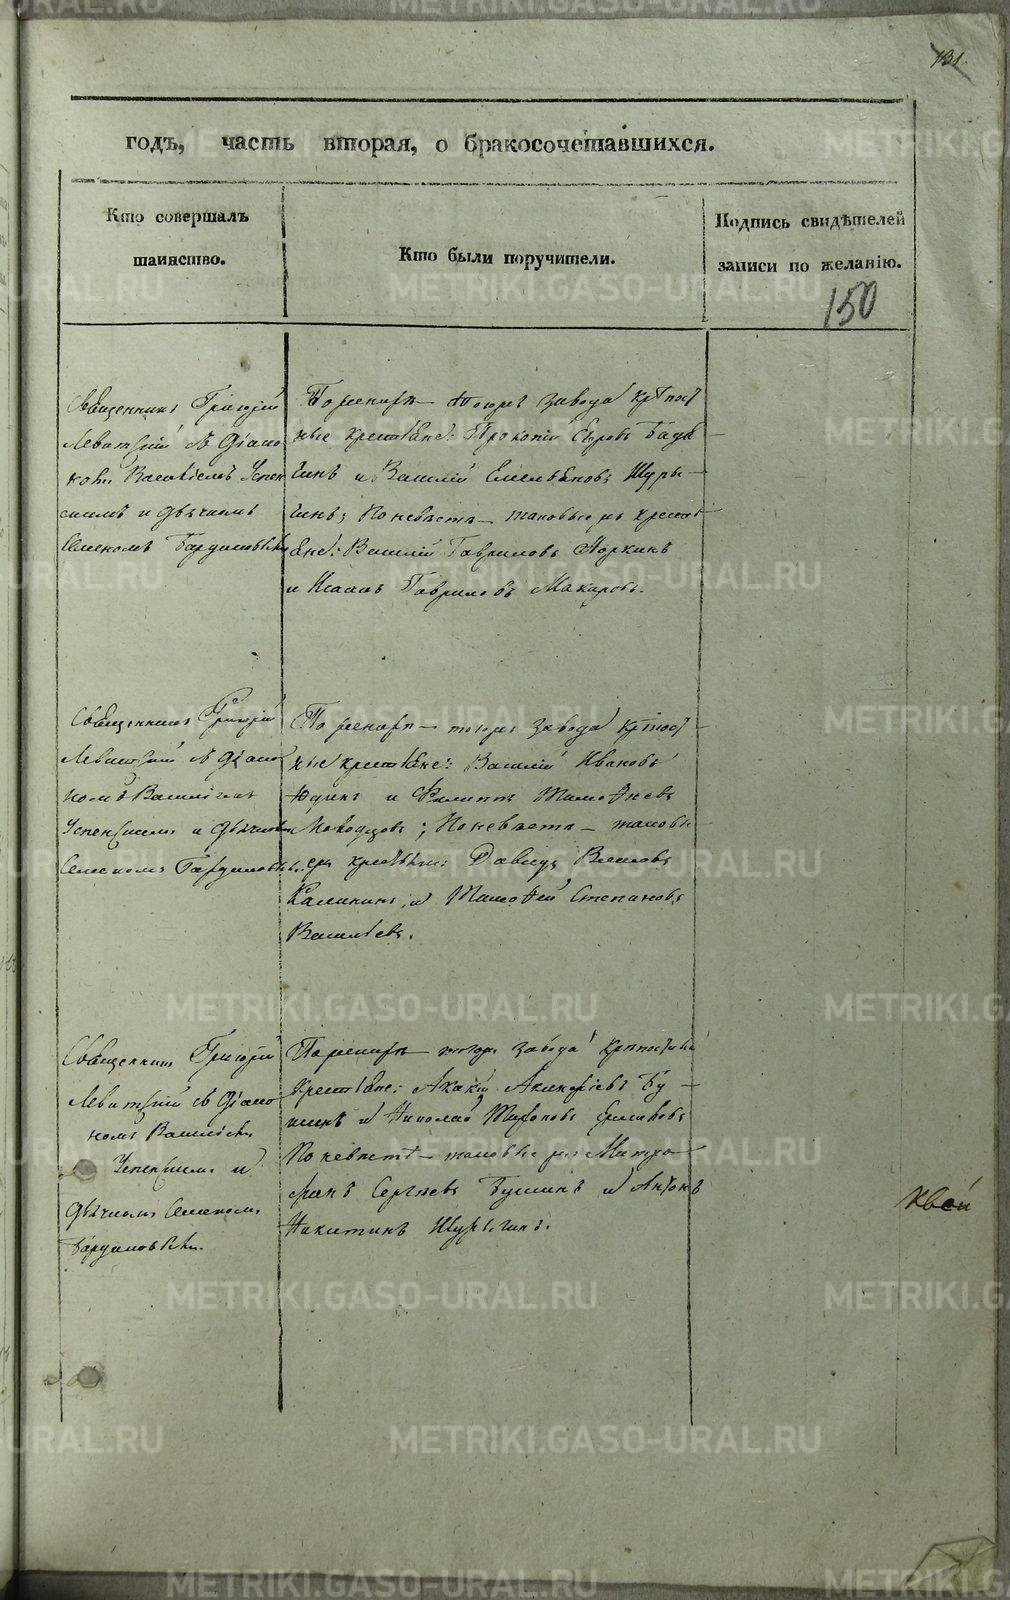 131.
годъ, часть вторая, о бракосочетавшихся.
Кто совершалъ
таинство.
Кто были поручители.
Подпись свидѣтелей
записи по желанію.
150
Священникъ Григорій
Левитскій съ Діако
номъ Василіемъ Успен
скимъ и дьячкомъ
Семеномъ
По женихѣ — тогоже завода крѣпост
ные крестьяне: Прокопій
и Василій Емельяновъ Шуры
гинъ; По невѣстѣ — таковые же кресть
яне: Василій Гавриловъ Норкинъ
и Исаакъ Гавриловъ Макаровъ.
Священникъ Григорій
Левитскій съ Діако
номъ Василіемъ
Успенскимъ и дьячкомъ
Семеномъ
По женихѣ — тогоже завода крѣпост
ные крестьяне: Василій Ивановъ
Юдинъ и Филиппъ Тимофеевъ
По невѣстѣ — таковы
еже крестьяне: Давидъ
Калининъ и Тимофей Степановъ
Васильевъ.
Священникъ Григорій
Левитскій съ Діако
номъ Василіемъ
Успенскимъ и
дьячкомъ Семеномъ
По женихѣ — тогоже завода крѣпостные
крестьяне: Акакій Алексѣевъ Бу
шинъ и Николай
По невѣстѣ — таковые же Митро
фанъ Сергѣевъ Бушинъ и Антонъ
Никитинъ Шурыгинъ.